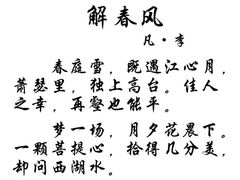 解春风
凡·李
春庭雪，既遇江心月，
萧瑟里，独上高台。佳人
之幸，再壑也能平。
梦一场，月夕花晨下。
一颗菩提心，拾得几分美，
却问西湖水。